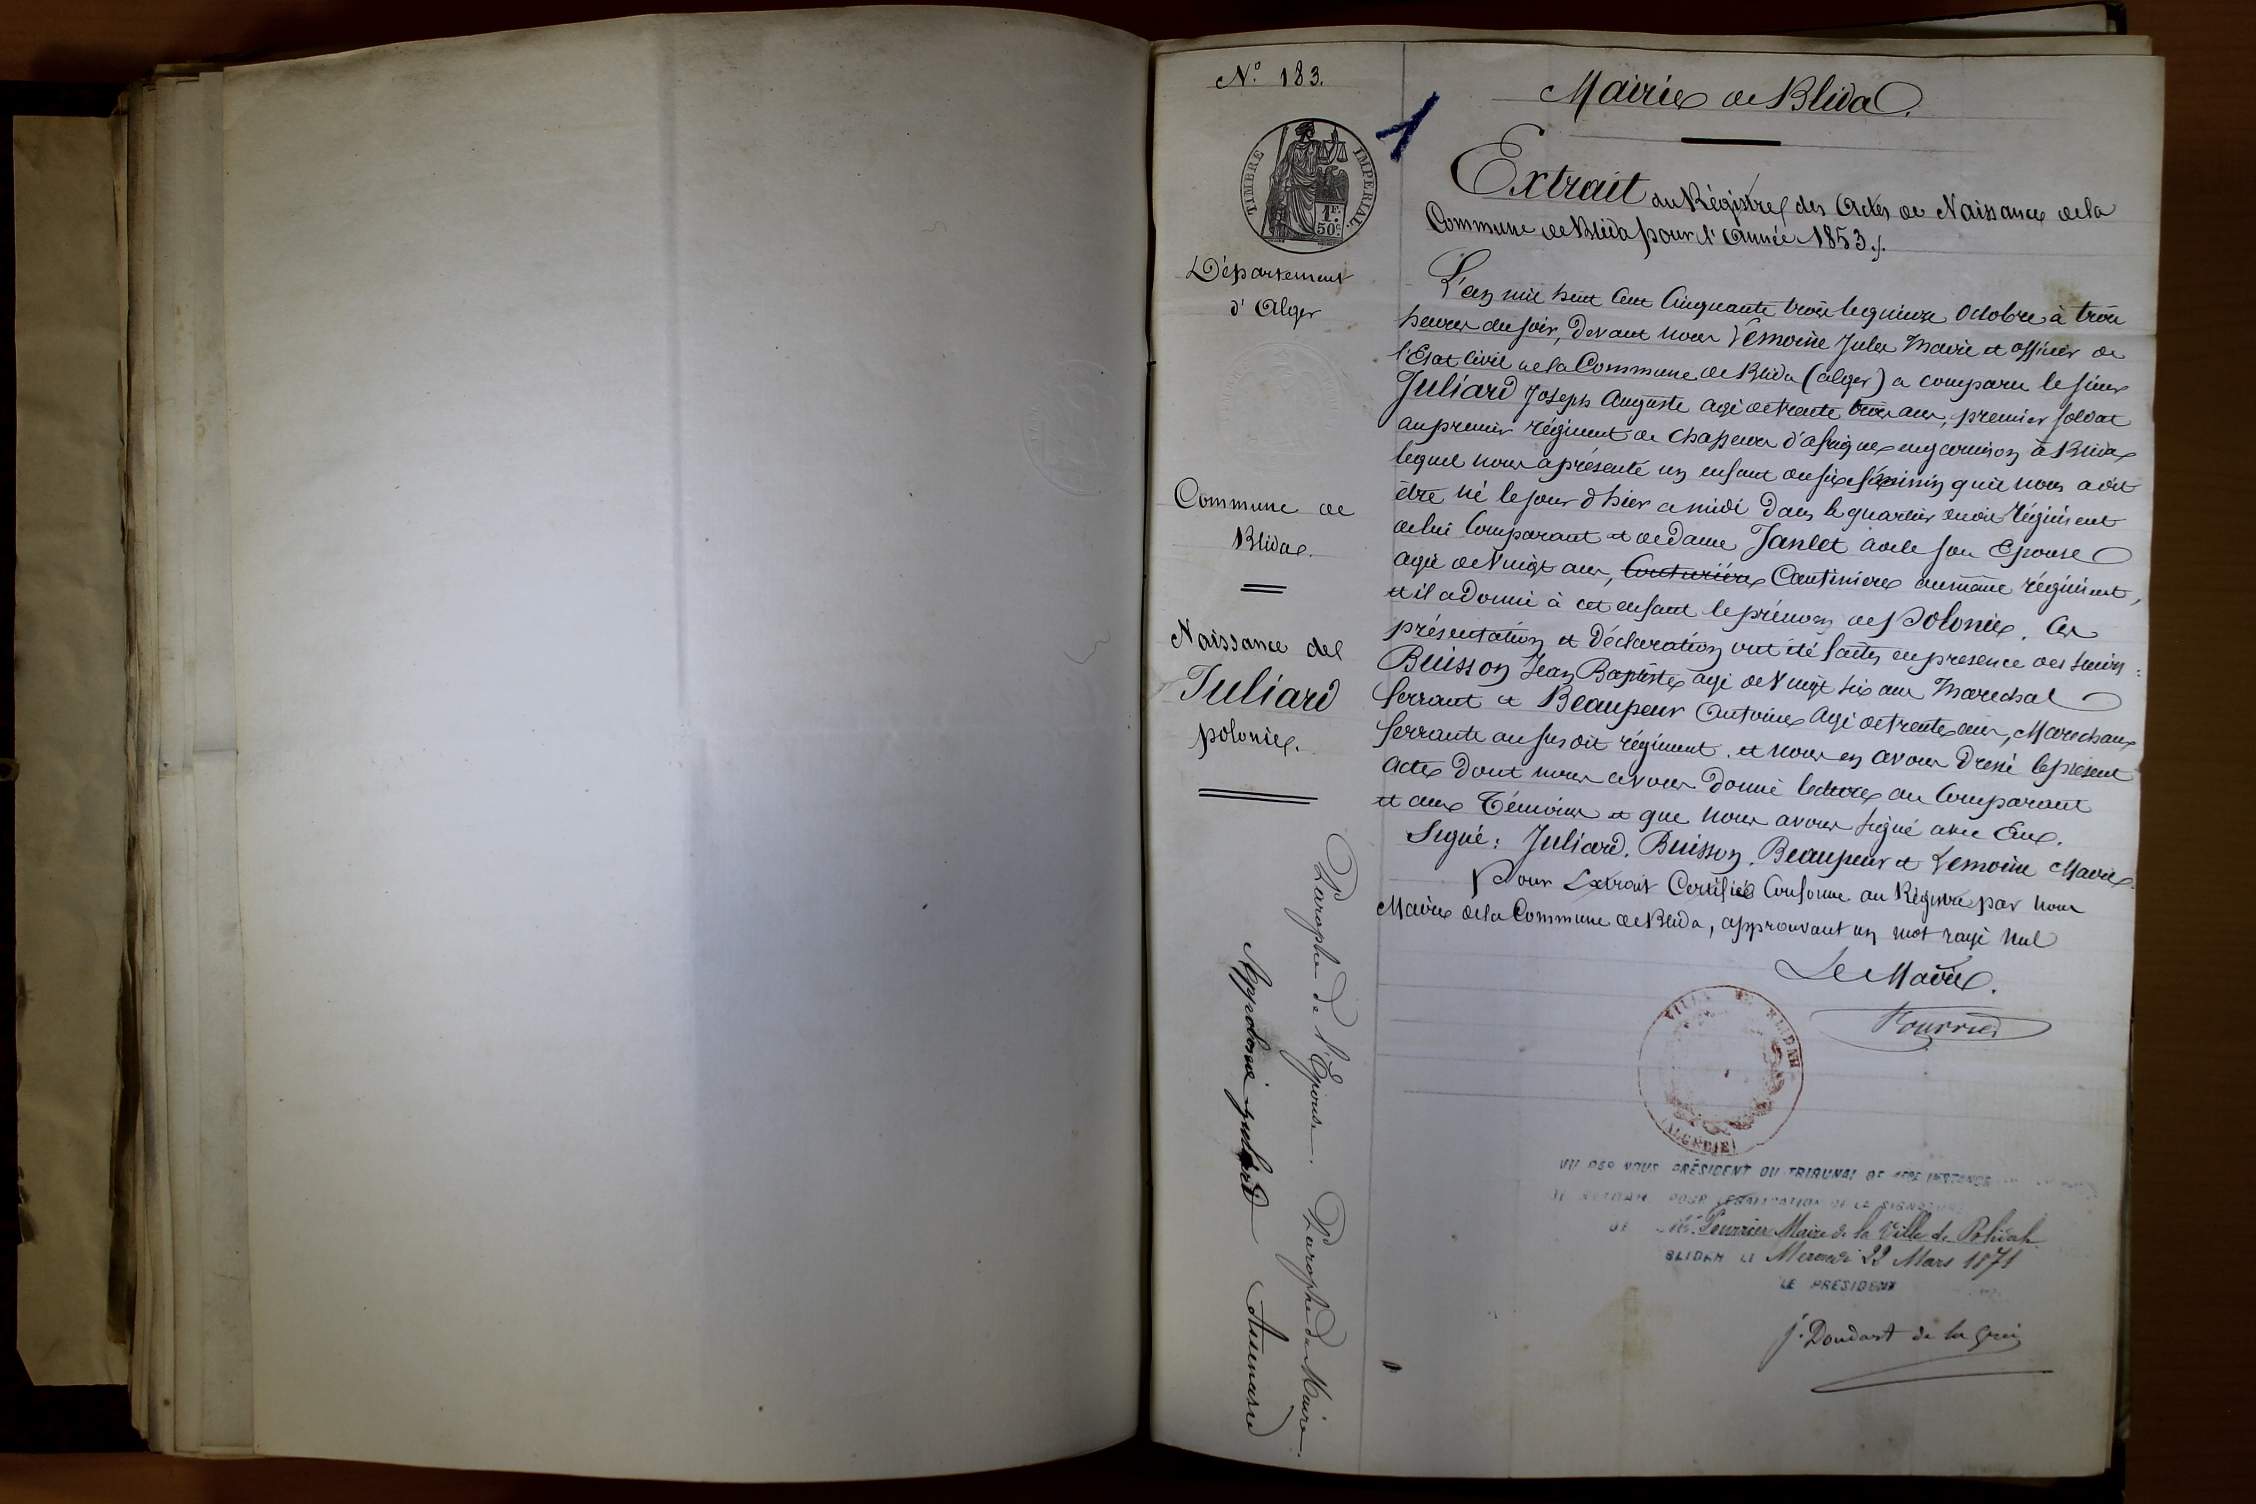 N.º 183.
TIMBRE IMPERIAL.
1F.
50c.
Département
d'Alger
Commune de
Blida.
Naissance de
Juliard
polonie.
Paraphe de l'Epouse. Paraphe du Maire.
Juliard
1
Mairie de Blida.
Extrait du Régistre des Actes de Naissance de la
Commune de Blida pour l'Année 1853.
L'an mil huit cent Cinquante trois le quinze Octobre à trois
heures du soir, devant nous Lemoine Jules Maire et officier de
l'Etat Civil de la Commune de Blida (alger) a comparu le sieur
Juliard Joseph Auguste agé de trente trois ans, premier soldat
au premier régiment de chasseurs d'afrique en garnison à Blida
lequel nous a présenté un enfant du sexe féminin qu'il nous a dit
être né le jour d'hier a midi dans le quartier dudit régiment
de lui Comparant et de dame Janlet adele son Epouse
agée de Vingt ans, Couturière Cantinière au même régiment,
et il a donné à cet enfant le prénom de Polonie. Ces
présentation et déclaration ont été faites en présence des sieurs :
Buisson Jean Baptiste agé de Vingt six ans Marechal
ferrant et Beaupeur Antoine agé de trente ans, Marechaux
ferrants au susdit régiment. et nous en avons dressé le présent
acte dont nous avons donné lecture au Comparant
et aux Témoins et que nous avons signé avec Eux.
Signé : Juliard. Buisson. Beaupeur et Lemoine Maire.
Pour Extrait Certifié Conforme au Régistre par nous
Maire de la Commune de Blida, approuvant un mot rayé nul
Le Maire.
Fourrier
VILLE DE BLIDAH
(ALGERIE)
VU PAR NOUS PRÉSIDENT DU TRIBUNAL DE 1ERE INSTANCE
DE BLIDAH POUR LEGALISATION DE LA SIGNATURE
DE Mr. Fourrier Maire de la Ville de Blidah
BLIDAH LE Mercredi 22 Mars 1871
LE PRESIDENT